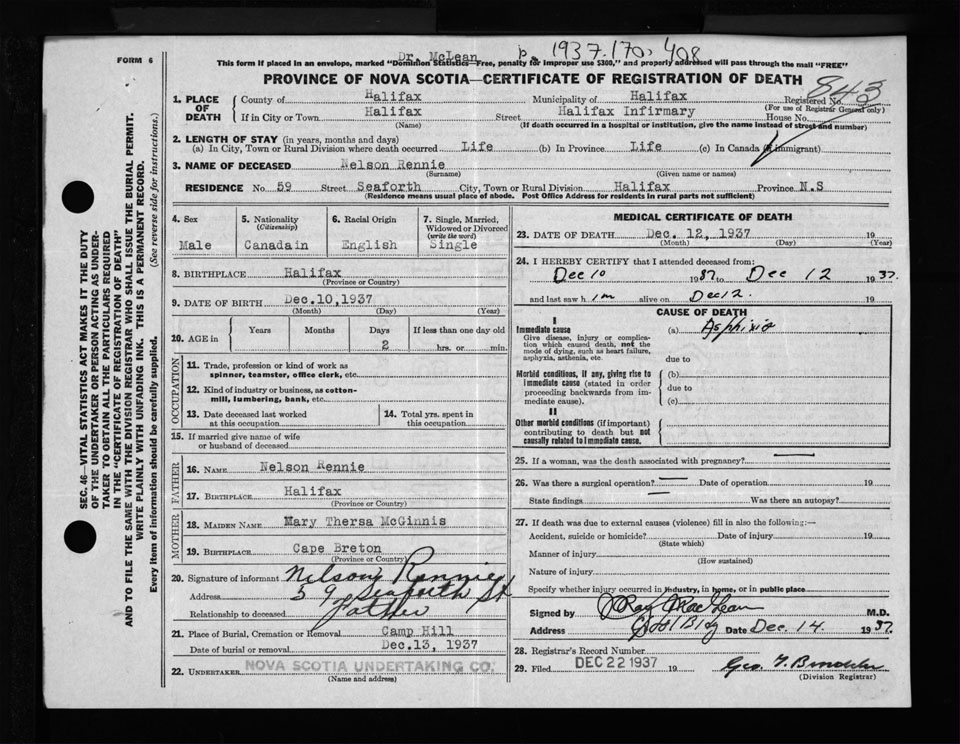 Dr. McLean p. 1937.170, 408
FORM 6
This form if placed in an envelope, marked "Dominion Statistics—Free, penalty for improper use $300," and properly addressed will pass through the mail "FREE"
PROVINCE OF NOVA SCOTIA—CERTIFICATE OF REGISTRATION OF DEATH
843
SEC. 46—VITAL STATISTICS ACT MAKES IT THE DUTY
OF THE UNDERTAKER OR PERSON ACTING AS UNDER-
TAKER TO OBTAIN ALL THE PARTICULARS REQUIRED
IN THE "CERTIFICATE OF REGISTRATION OF DEATH"
AND TO FILE THE SAME WITH THE DIVISION REGISTRAR WHO SHALL ISSUE THE BURIAL PERMIT.
WRITE PLAINLY WITH UNFADING INK. THIS IS A PERMANENT RECORD.
Every item of information should be carefully supplied. (See reverse side for instructions.)
1. PLACE OF DEATH County of Halifax Municipality of Halifax Registered No.
(For use of Registrar General only)
If in City or Town Halifax Street Halifax Infirmary House No.
(Name) (If death occurred in a hospital or institution, give the name instead of street and number)
2. LENGTH OF STAY (in years, months and days)
(a) In City, Town or Rural Division where death occurred Life (b) In Province Life (c) In Canada (if immigrant)
3. NAME OF DECEASED Nelson Rennie
(Surname) (Given name or names)
RESIDENCE No. 59 Street Seaforth City, Town or Rural Division Halifax Province N.S
(Residence means usual place of abode. Post Office Address for residents in rural parts not sufficient)
4. Sex Male
5. Nationality (Citizenship) Canadain
6. Racial Origin English
7. Single, Married, Widowed or Divorced (write the word) Single
8. BIRTHPLACE Halifax
(Province or Country)
9. DATE OF BIRTH Dec.10,1937
(Month) (Day) (Year)
10. AGE in Years Months Days 2 If less than one day old hrs. or min.
OCCUPATION
11. Trade, profession or kind of work as
spinner, teamster, office clerk, etc.
12. Kind of industry or business, as cotton-
mill, lumbering, bank, etc.
13. Date deceased last worked at this occupation
14. Total yrs. spent in this occupation
15. If married give name of wife
or husband of deceased
FATHER
16. NAME Nelson Rennie
17. BIRTHPLACE Halifax
(Province or Country)
MOTHER
18. MAIDEN NAME Mary Thersa McGinnis
19. BIRTHPLACE Cape Breton
(Province or Country)
20. Signature of informant Nelson Rennie
Address 59 Seaforth St
Relationship to deceased Father
21. Place of Burial, Cremation or Removal Camp Hill
Date of burial or removal Dec.13, 1937
22. UNDERTAKER NOVA SCOTIA UNDERTAKING CO.
(Name and address)
MEDICAL CERTIFICATE OF DEATH
23. DATE OF DEATH Dec. 12, 1937 19
(Month) (Day) (Year)
24. I HEREBY CERTIFY that I attended deceased from:
Dec 10 1937 to Dec 12 1937.
and last saw h im alive on Dec 12. 19
CAUSE OF DEATH
I
Immediate cause (a) Asphixia
Give disease, injury or complica-
tion which caused death, not the
mode of dying, such as heart failure,
asphyxia, asthenia, etc. due to
Morbid conditions, if any, giving rise to (b)
immediate cause (stated in order due to
proceeding backwards from im-
mediate cause). (c)
II
Other morbid conditions (if important)
contributing to death but not
causally related to immediate cause.
25. If a woman, was the death associated with pregnancy? —
26. Was there a surgical operation? — Date of operation 19
State findings Was there an autopsy?
27. If death was due to external causes (violence) fill in also the following:—
Accident, suicide or homicide? Date of injury 19
(State which)
Manner of injury
(How sustained)
Nature of injury
Specify whether injury occurred in industry, in home, or in public place
Signed by J Ray MacLean M.D.
Address Date Dec. 14 1937.
28. Registrar's Record Number
29. Filed DEC 22 1937 19 Geo.
(Division Registrar)